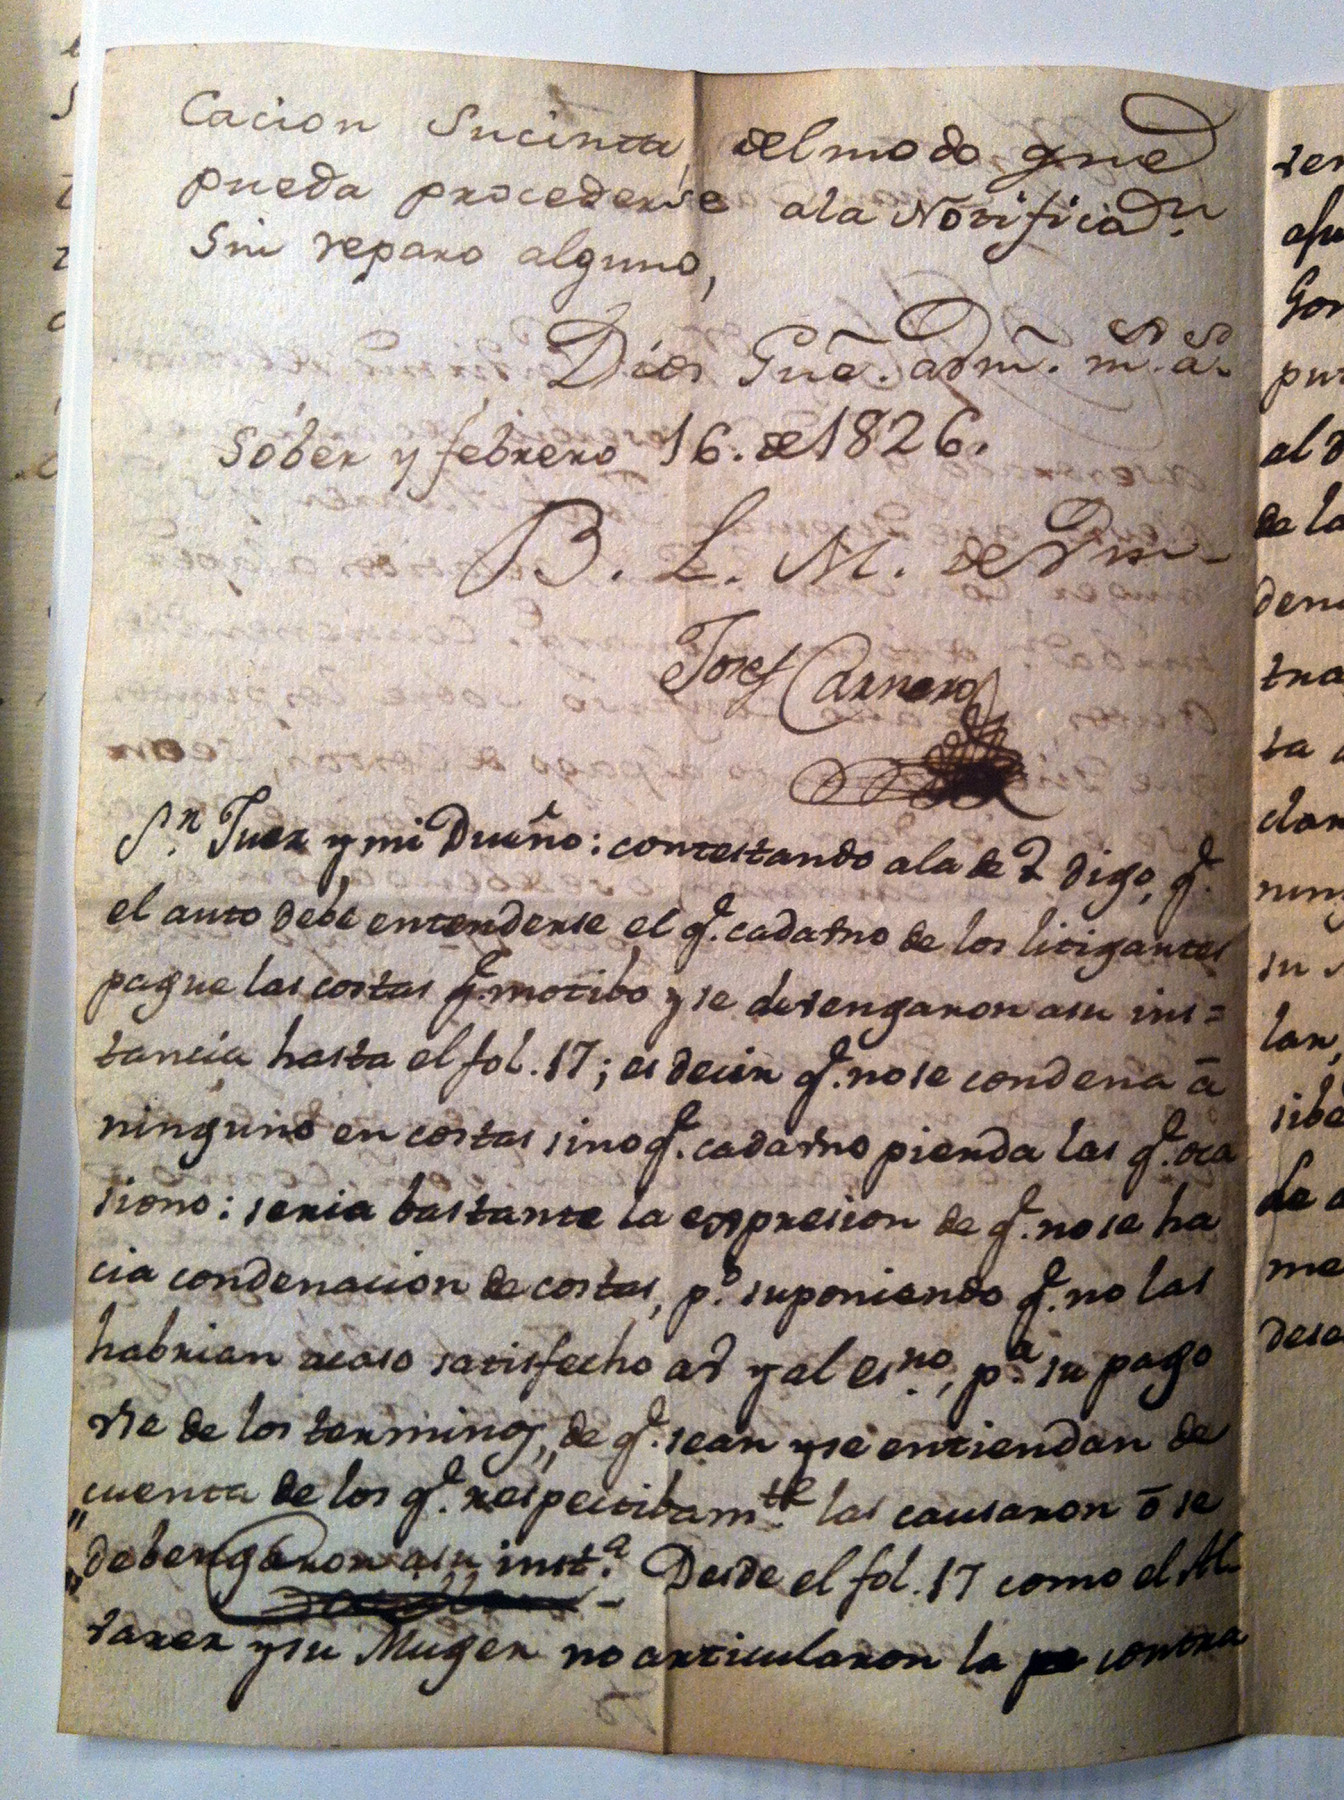 Cacion Sucinta, del modo que
pueda procederse ala Notificia.n
Sin reparo alguno,
Dios Gue. a Vm. ms. as.
Sóber y febrero 16. de 1826.
B. L. M. de Vm.
Josef Carnero
S.n Juez y mi Dueño: contestando ala de V digo, q.e
el auto debe entenderse el q.e cada vno de los litigantes
pague las costas q.e motibo y se devengaron asu ins=
tancia hasta el fol. 17; es decir q.e no se condena á
ninguno en costas sino q.e cada vno pierda las q.e oca
siono: seria bastante la expresion de q.e no se ha
cia condenacion de costas, p.o suponiendo q.e no las
habrian acaso satisfecho a V y al es.no, p.a su pago
vse de los terminos, de q.e sean y se entiendan de
cuenta de los q.e respectibam.te las causaron ó se
" debengaron asu inst.a Desde el fol. 17 como el Al
varez y su Muger no articularon la contra
ver
al
de la
tra
ta
clar
su
lar,
de
me